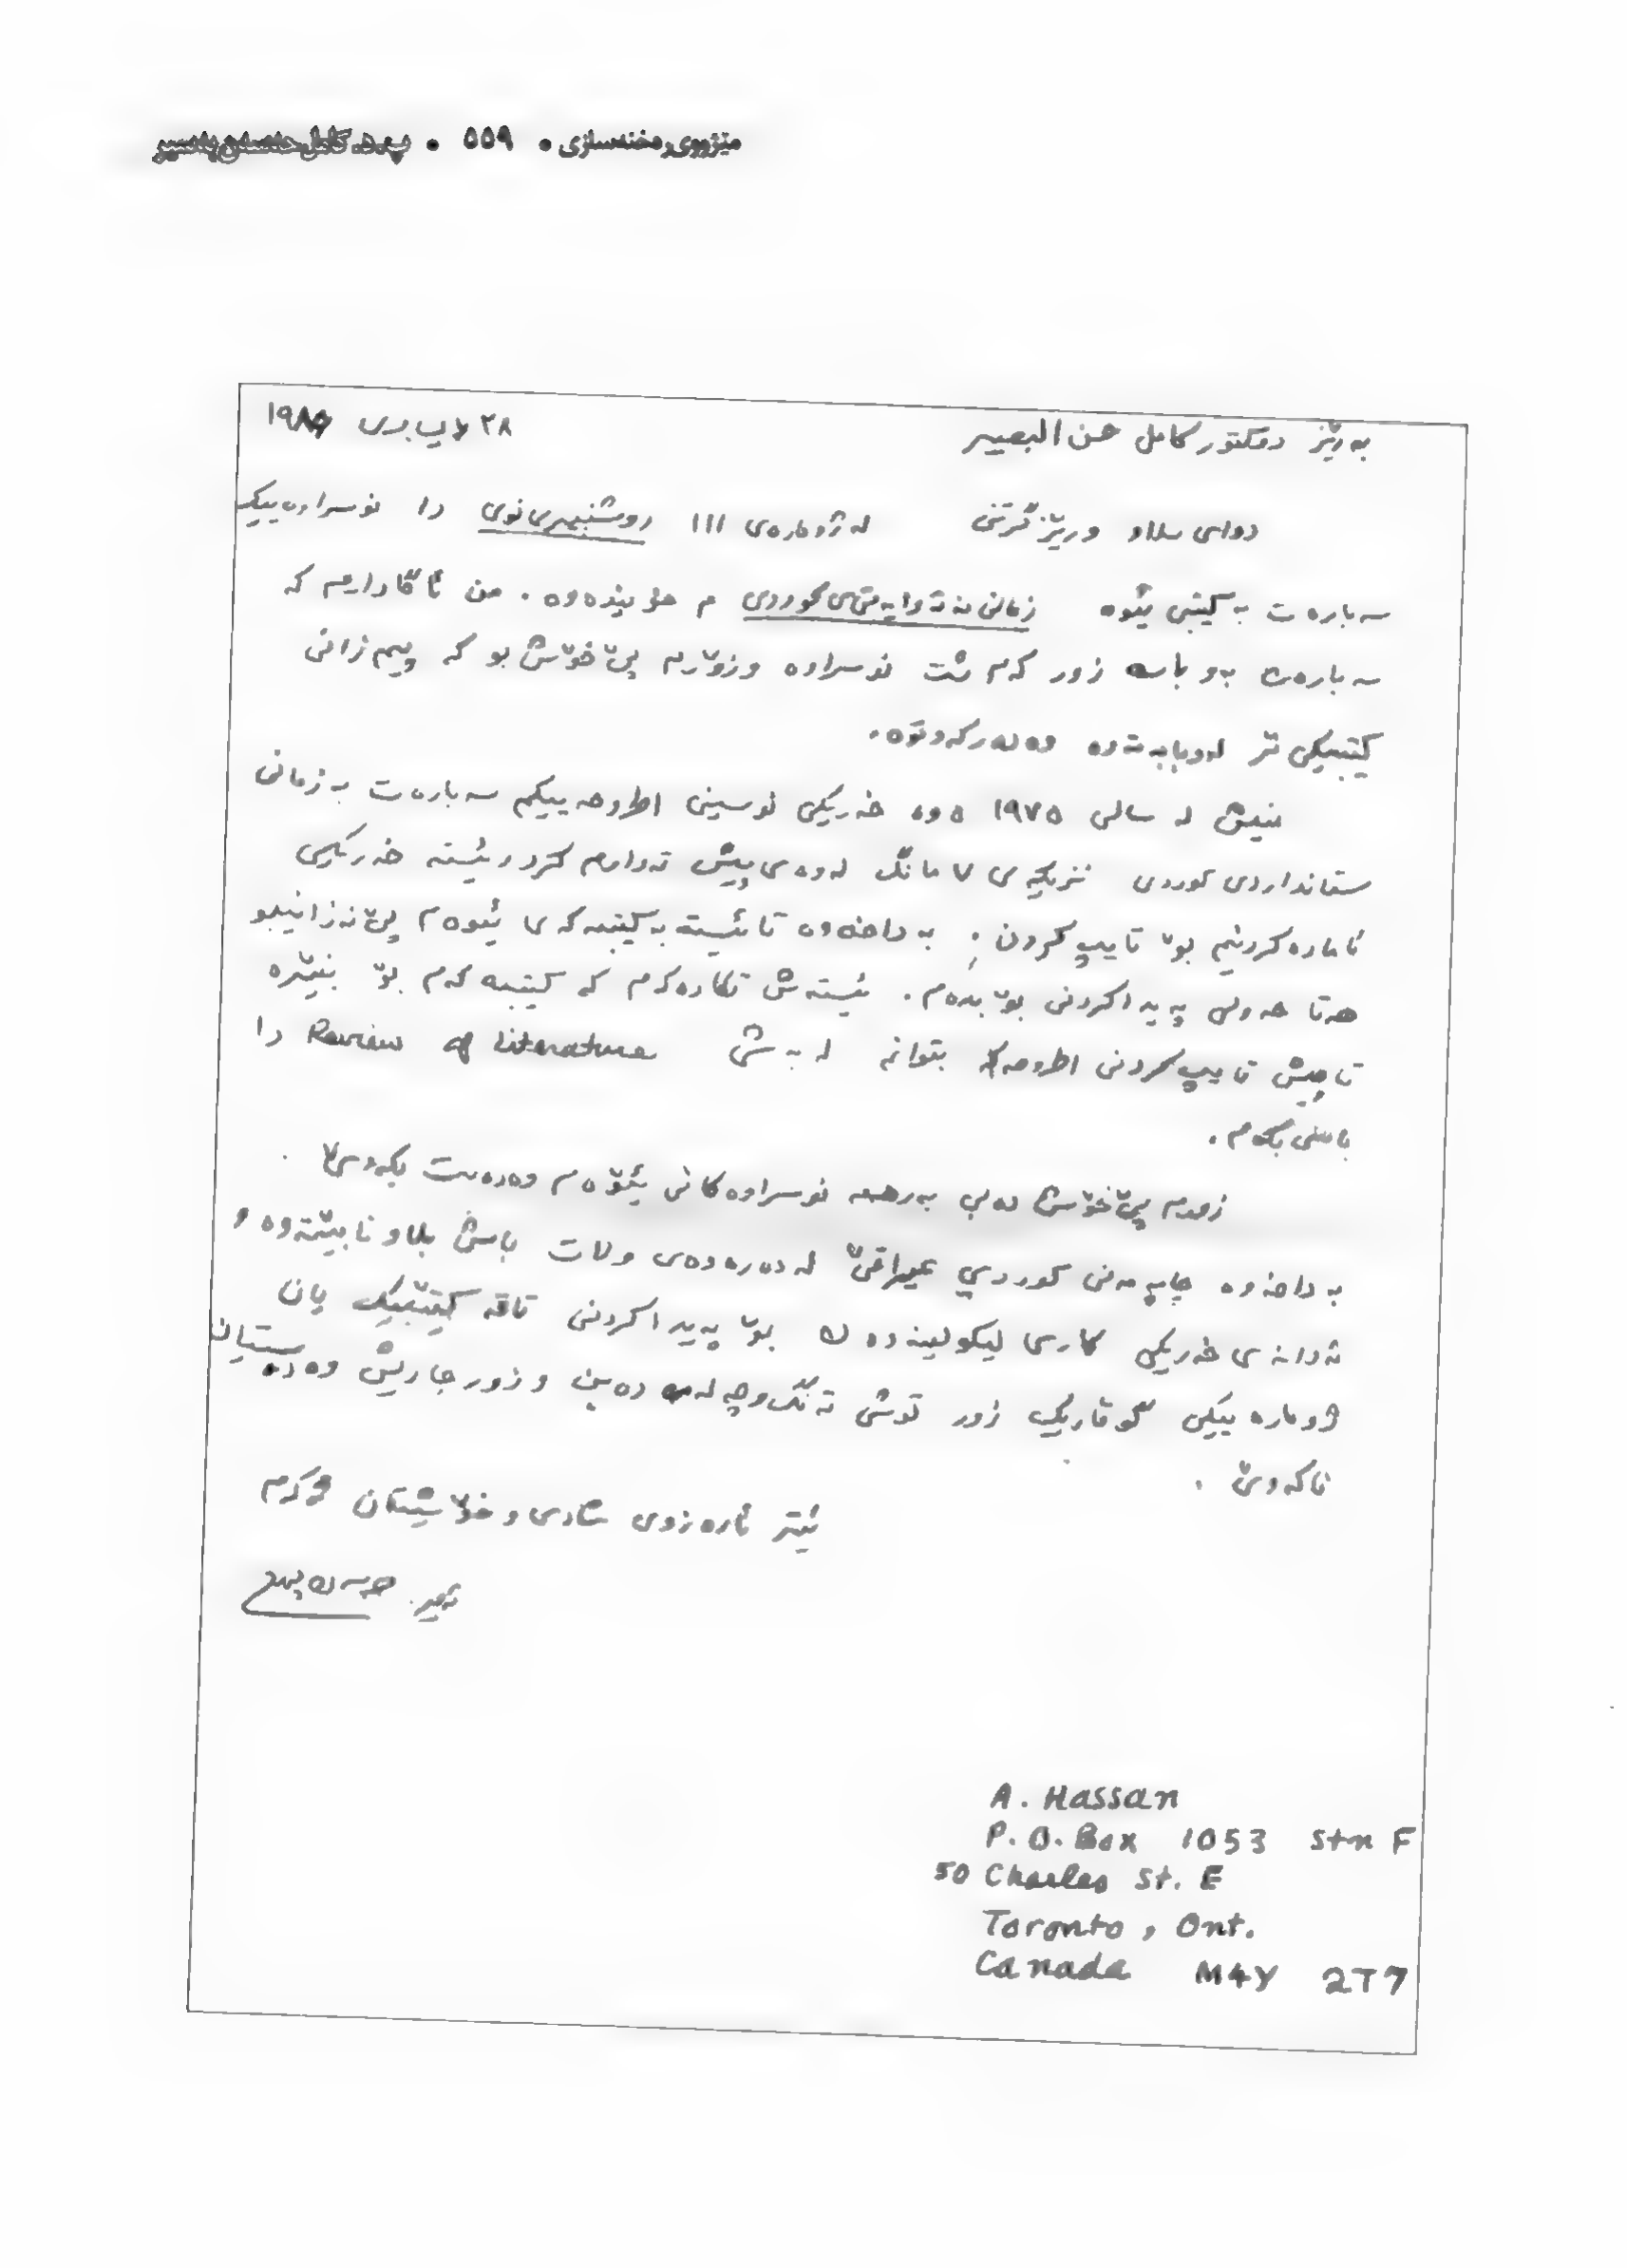 مێژووی ڕەخنەسازی • ٥٥٩ • پ.د. کامل حەسەن بەسیر
بەرێز دوکتور کامل حسن البصیر
٢٨
دوای سلاو و رێزگرتنی لە ژومارەی ١١١ روشنبیری نوی دا نوسراوەییک
سەبارەت بە کیتبی ئێوە زمانی نەتەوایەتی کوردی م خوێندەوە. من ئاگادارم کە
سەبارەت بەو باسە زور کەم شت نوسراوە وزۆرم پێ خۆش بو کە پیم زانی
کیتبیکی تر لەو بابەتەدە وەدەرکەوتوە.
منیش لە سالی ١٩٧٥ ەوە خەریکی نوسینی اطروحەییکم سەبارەت بە زمانی
ستانداردی کوردی نزیکەی ٧ مانگ لەوەی پیش تەواوم کرد و ئیستە خەریکی
ئامادەکردنیم بۆ تایپ کردن؛ بەداخەوە تا ئیستە بە کیتبەکەی ئێوەم پێ نەزانیبو
هەتا هەولی پەیداکردنی بۆ بدەم. ئیستەش تکادەکەم کە کیتبەکەم بۆ بنێرە
تا پیش تایپ کردنی اطروحەکە بتوانم لە بەشی Review of Literature دا
باسی بکەم.
زورم پێ خۆش دەبی بەرهەمە نوسراوەکانی ئێوەم وەدەست بکەوێ.
بەداخەوە چاپەمەنی کوردیی عیراقێ لە دەرەوەی ولات باش بلاو نابێتەوە و
ئەوانەی خەریکی کاری لیکولینەوەن بۆ پەیداکردنی تاقە کیتبێک یان
ژومارەییکی گوڤاریک زور توشی تەنگ وچەلەمە دەبن و زور جاریش وەدەستیان
ناکەوێ.
ئیتر ئارەزوی شادی و خۆشیتان بۆ دەکەم
ئەمیر حەسەن پور
A. Hassan
P.O. Box 1053 Stn F
50 Charles St. E
Toronto, Ont.
Canada M4Y 2T7